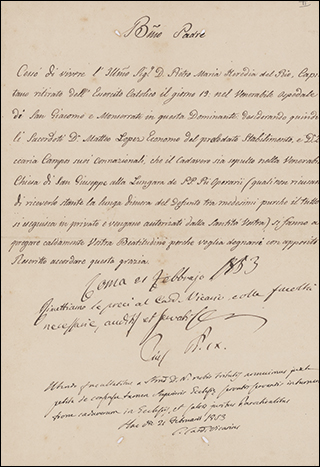 Bmo Padre
Cessò di vivere l'Illmo Sigr D. Pietro Maria Heredia del Rio, Capi-
tano ritirato dell'Esercito Catolico il giorno 19. nel Venerabile Ospedale
di San Giacomo e Monserrato in questa Dominante. Desiderando quindi
li Sacerdoti Dn Matteo Lopez Economo del prelodato Stabilimento, e D. Zac-
caria Campo suoi connazionali, che il Cadavere sia sepulto nella Venerabile
Chiesa di San Giuseppe alla Lungara de PP. Pii Operarii (quali non ricusano
di riceverlo stante la lunga dimora del defunto tra medesimi purchè il tutto
si eseguisca in privato e vengano autorizati dalla Santità Vostra) si fanno a
pregare caldamente Vostra Beatitudine perchè voglia degnarsi con apposito
Rescritto accordare questa grazia.
Roma 21 Febbrajo 1853
Rimettiamo le preci al Card. Vicario colle facoltà
necessarie,
Pius P. IX.
die 21 Februarii 1853
Card. Vicarius